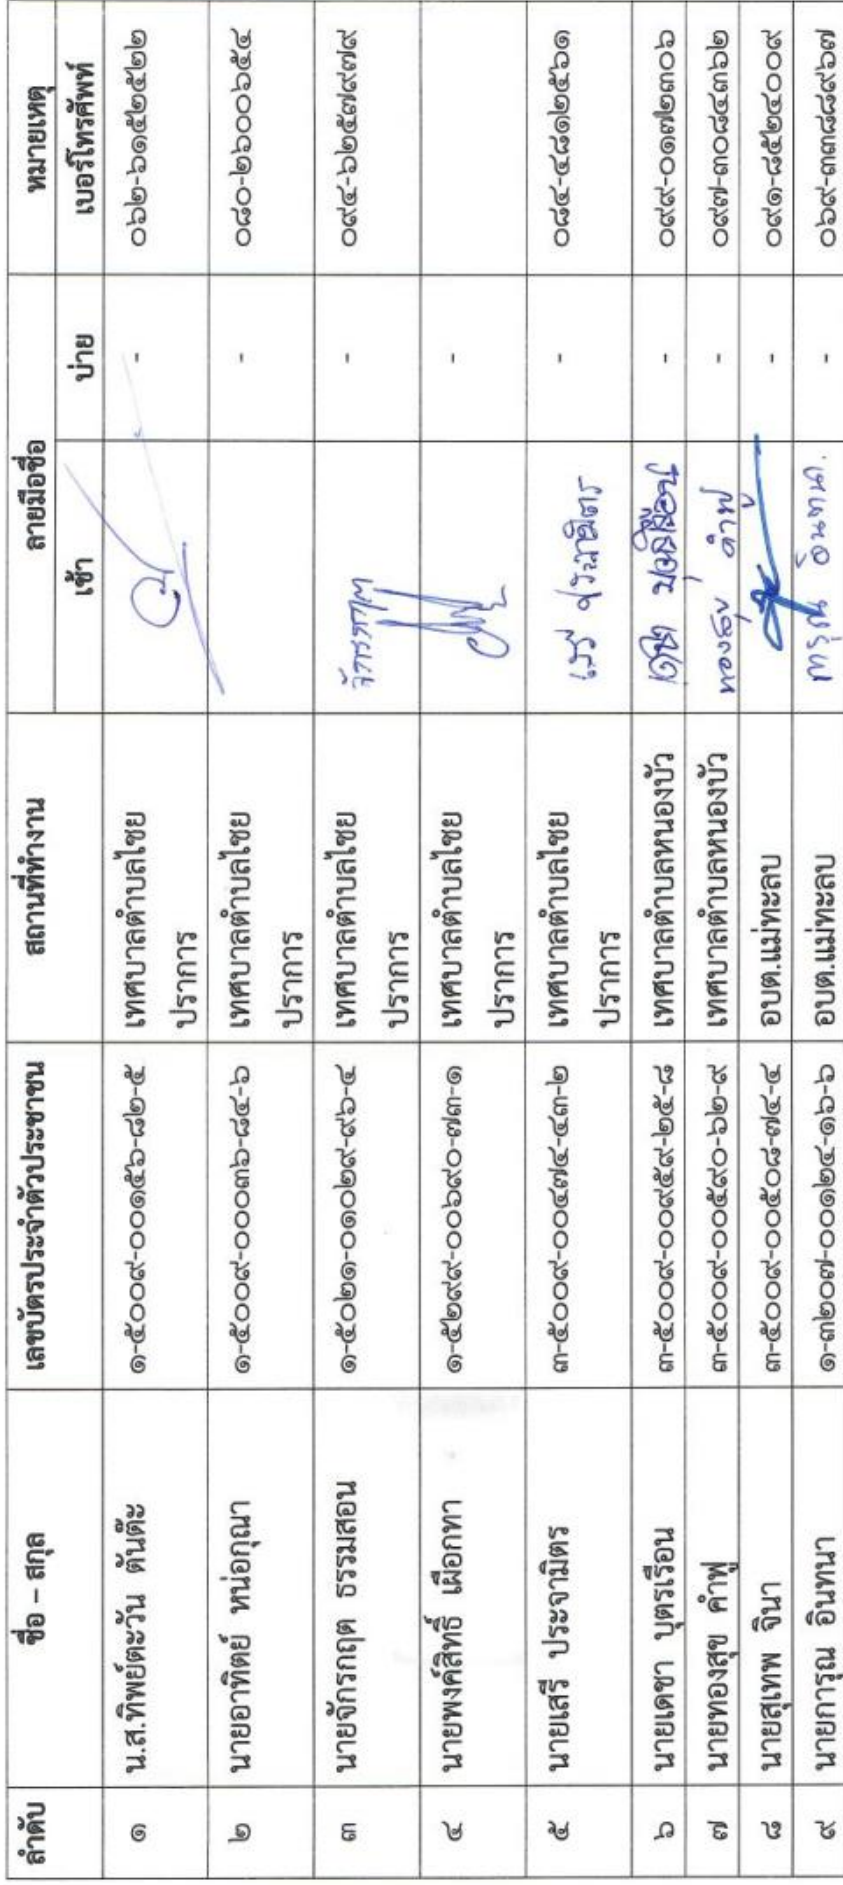 ลำดับ ชื่อ – สกุล เลขบัตรประจำตัวประชาชน สถานที่ทำงาน ลายมือชื่อ หมายเหตุ
เช้า บ่าย เบอร์โทรศัพท์
๑ น.ส.ทิพย์ตะวัน ตันต๊ะ ๑-๕๐๐๙-๐๐๑๕๖-๘๒-๕ เทศบาลตำบลไชย - ๐๖๒-๖๑๕๒๕๒๒
ปราการ
๒ นายอาทิตย์ หน่อกุณา ๑-๕๐๐๙-๐๐๐๓๖-๘๔-๖ เทศบาลตำบลไชย - ๐๘๐-๒๖๐๐๖๕๔
ปราการ
๓ นายจักรกฤต ธรรมสอน ๑-๕๐๒๑-๐๑๐๒๙-๙๖-๔ เทศบาลตำบลไชย - ๐๙๔-๖๒๕๗๙๗๙
ปราการ
๔ นายพงค์สิทธิ์ เผือกทา ๑-๕๒๙๙-๐๐๖๙๐-๗๓-๑ เทศบาลตำบลไชย -
ปราการ
๕ นายเสรี ประจามิตร ๓-๕๐๐๙-๐๐๔๗๔-๔๓-๒ เทศบาลตำบลไชย เสรี ประจามิตร - ๐๘๔-๔๘๑๒๕๖๑
ปราการ
๖ นายเดชา บุตรเรือน ๓-๕๐๐๙-๐๐๙๕๙-๒๕-๘ เทศบาลตำบลหนองบัว เดชา บุตรเรือน - ๐๙๙-๐๑๗๒๓๐๖
๗ นายทองสุข คำฟู ๓-๕๐๐๙-๐๐๕๙๐-๖๒-๙ เทศบาลตำบลหนองบัว ทองสุข คำฟู - ๐๙๗-๓๐๘๔๓๖๒
๘ นายสุเทพ จินา ๓-๕๐๐๙-๐๐๕๐๘-๗๔-๔ อบต.แม่ทะลบ - ๐๙๑-๘๕๒๔๐๐๙
๙ นายการุณ อินทนา ๑-๓๒๐๗-๐๐๑๒๔-๑๖-๖ อบต.แม่ทะลบ การุณ อินทนา - ๐๖๙-๓๓๘๘๙๖๗